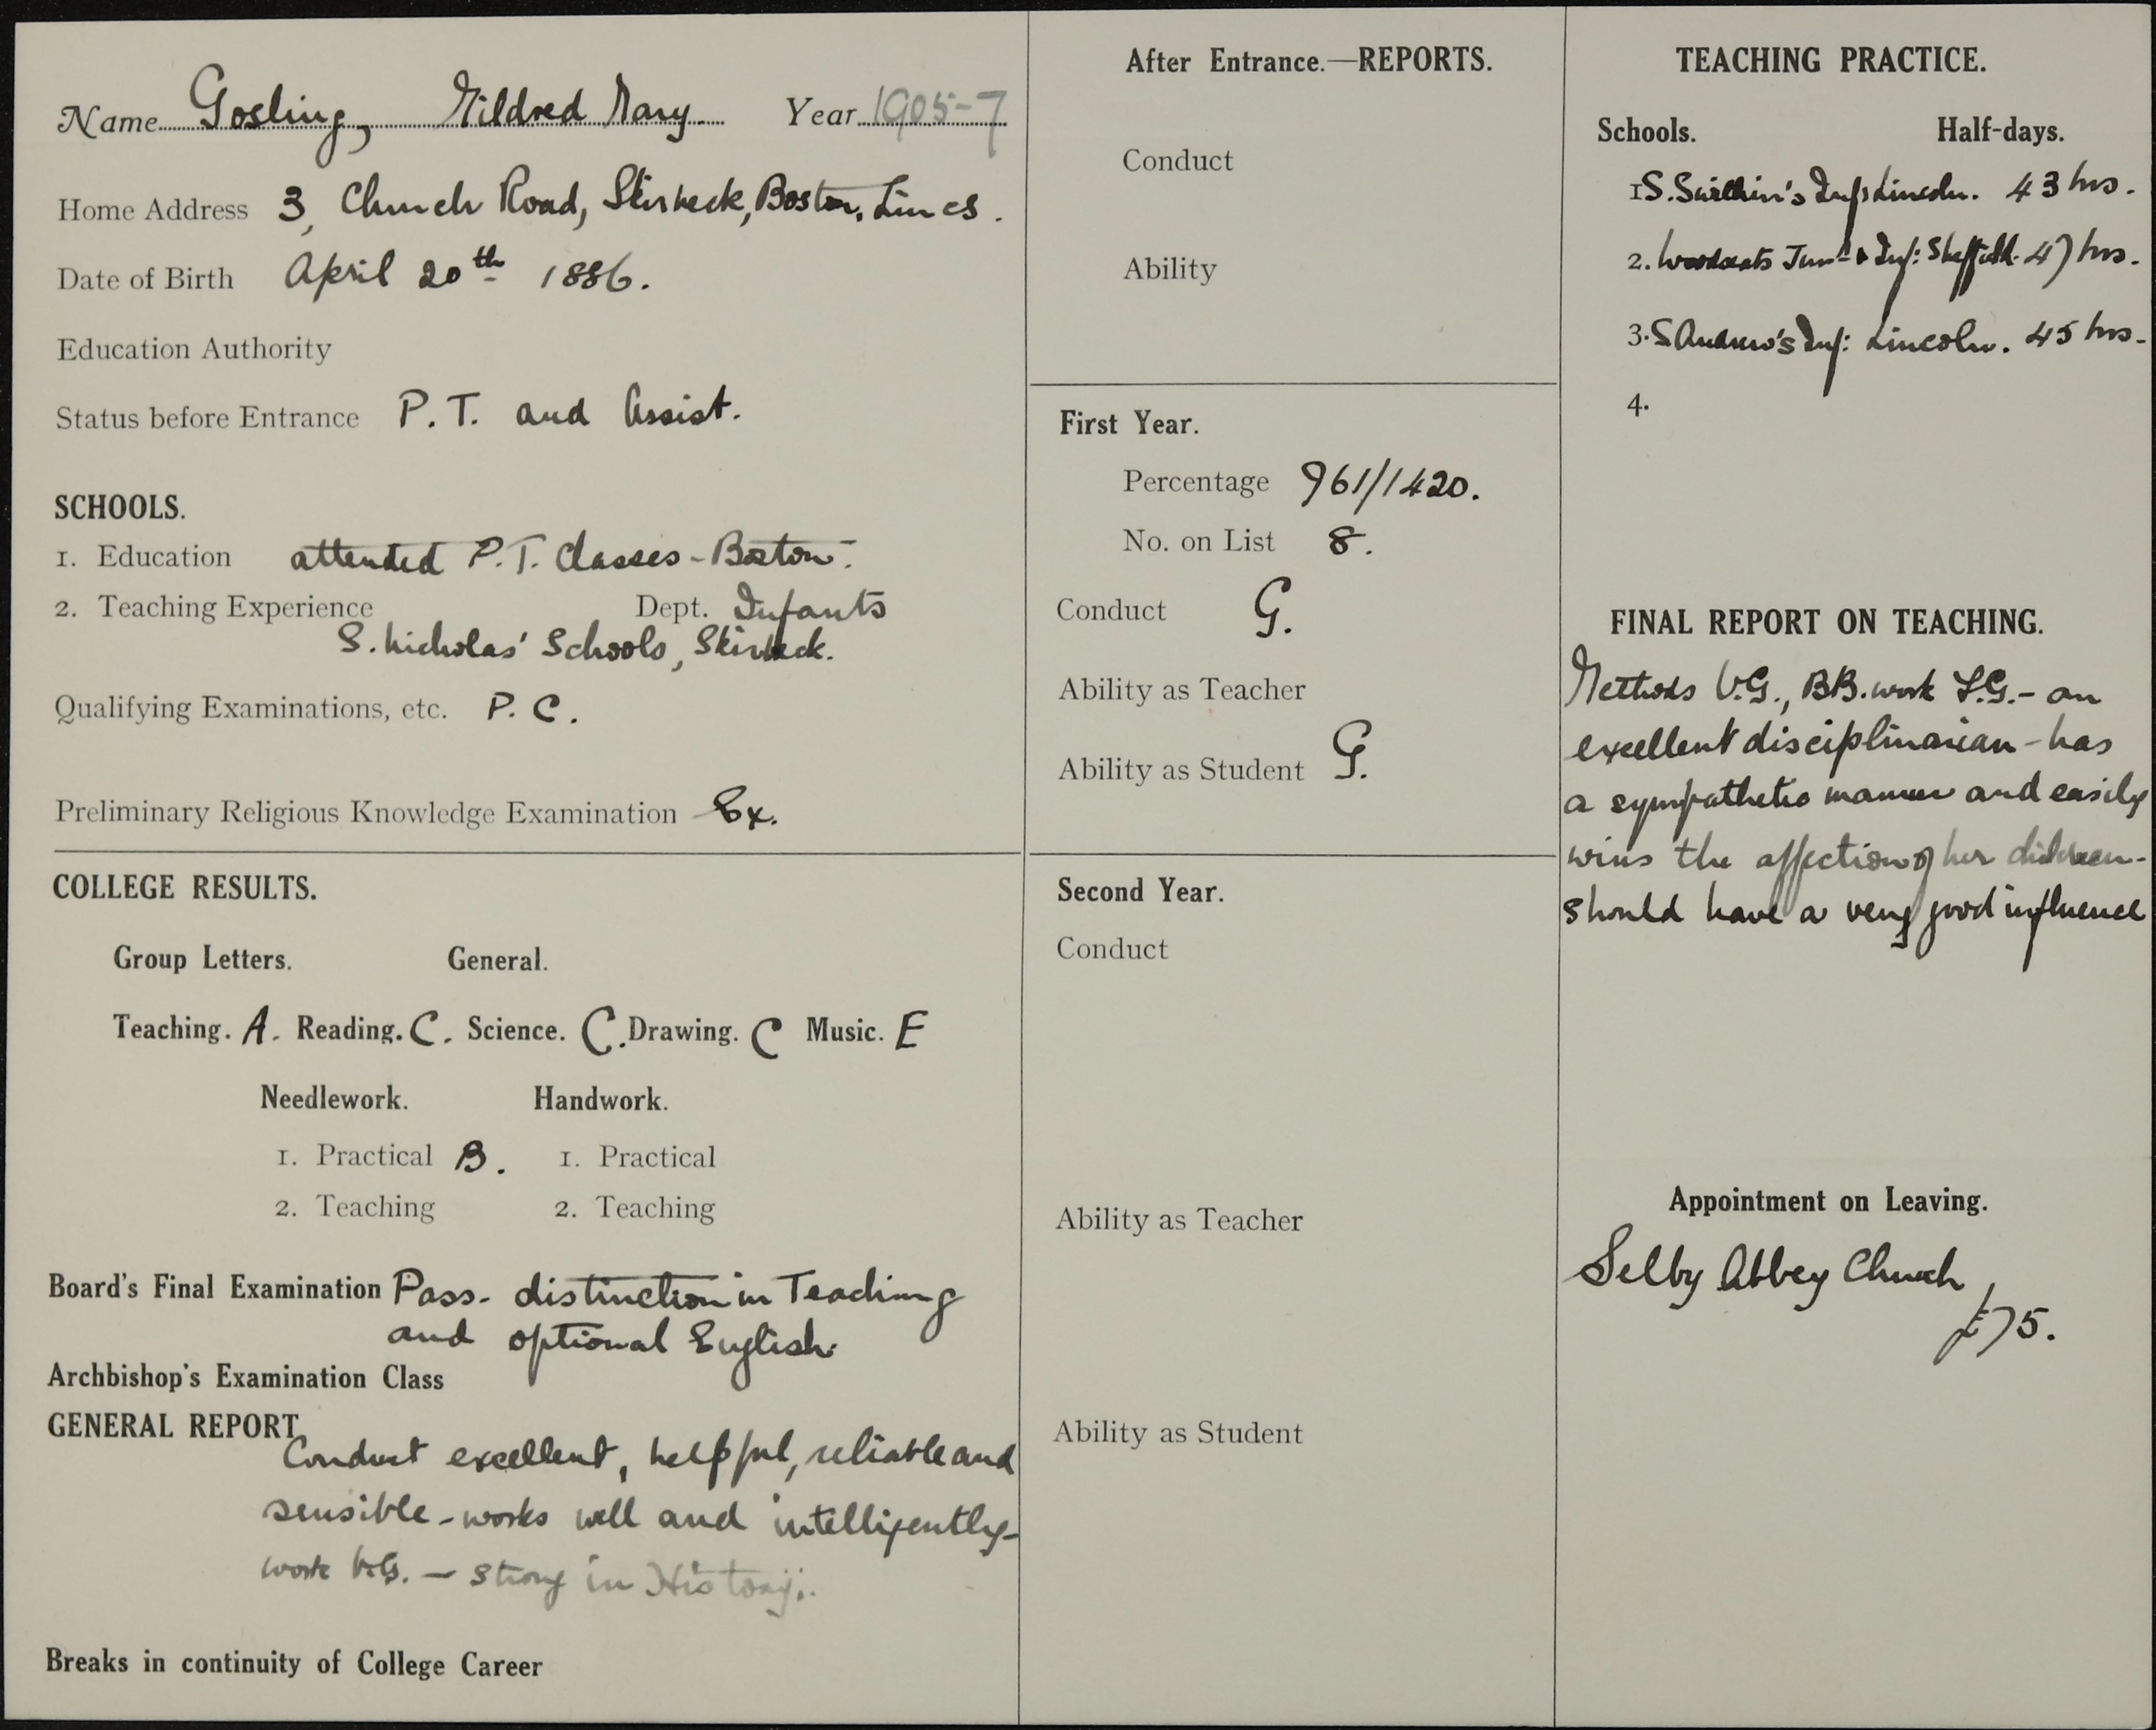 Name Gosling, Mildred Mary. Year 1905-7
Home Address 3, Church Road, Skirbeck, Boston, Lincs.
Date of Birth April 20th 1886.
Education Authority
Status before Entrance P.T. and Assist.
SCHOOLS.
1. Education attended P.T. Classes - Boston.
2. Teaching Experience Dept. Infants
S. Nicholas' Schools, Skirbeck.
Qualifying Examinations, etc. P.C.
Preliminary Religious Knowledge Examination Ex.
COLLEGE RESULTS.
Group Letters. General.
Teaching. A. Reading. C. Science. C. Drawing. C Music. E
Needlework. Handwork.
1. Practical B. 1. Practical
2. Teaching 2. Teaching
Board's Final Examination Pass - distinction in Teaching
and optional English.
Archbishop's Examination Class
GENERAL REPORT
Conduct excellent, helpful, reliable and
sensible - works well and intelligently -
work V.G. - strong in History.
Breaks in continuity of College Career
After Entrance.—REPORTS.
Conduct
Ability
First Year.
Percentage 961/1420.
No. on List 8.
Conduct G.
Ability as Teacher
Ability as Student G.
Second Year.
Conduct
Ability as Teacher
Ability as Student
TEACHING PRACTICE.
Schools. Half-days.
1 S. Swithin's Inf: Lincoln. 43 hrs.
2. Woodseats Junr & Inf: Sheffield. 47 hrs.
3. S Andrew's Inf: Lincoln. 45 hrs.
4.
FINAL REPORT ON TEACHING.
Methods V.G., BB. work F.G. - an
excellent disciplinarian - has
a sympathetic manner and easily
wins the affection of her children -
should have a very good influence
Appointment on Leaving.
Selby Abbey Church
£75.